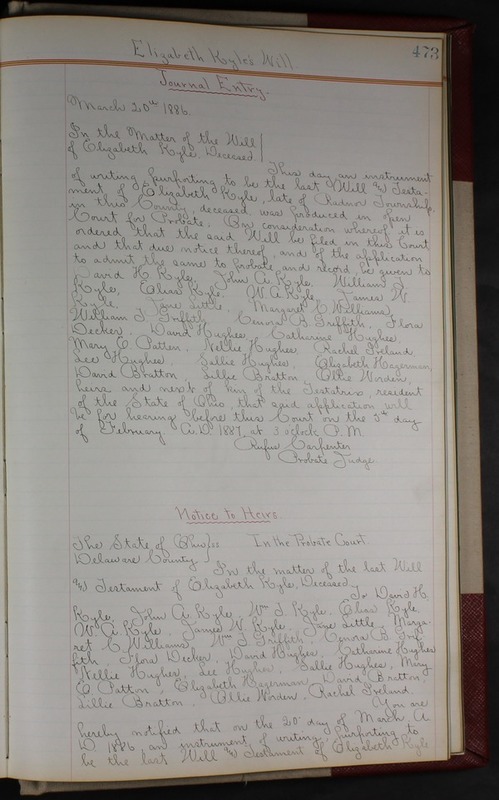 473
Elizabeth Kyle's Will
Journal Entry.
March 20th 1886.
In the Matter of the Will
of Elizabeth Kyle, Deceased
This day an instrument
of writing, purporting to be the last Will & Testa-
ment of Elizabeth Kyle, late of Radnor Township,
in this County, deceased, was produced in open
Court for Probate. On consideration whereof it is
ordered that the said Will be filed in this Court
and that due notice thereof, and of the application
to admit the same to probate and record, be given to
David H. Kyle, John A. Kyle, William J.
Kyle, Elias Kyle, W. A. Kyle, James W.
Kyle, Jane Little, Margaret C. Williams,
William J. Griffith, Cenora B. Griffith, Flora
Decker, David Hughes, Catherine Hughes,
Mary E. Patten, Nellie Hughes, Rachel Ireland,
Lee Hughes, Sallie Hughes, Elizabeth Hagerman,
David Bratton, Lillie Bratton, Ollie Worden,
heirs and next of kin of the Testatrix, resident
of the State of Ohio, that said application will
be for hearing before this Court on the 5th day
of February A.D. 1887, at 3 o'clock P.M.
Rufus Carpenter
Probate Judge
Notice to Heirs.
The State of Ohio } ss In the Probate Court.
Delaware County
In the matter of the last Will
& Testament of Elizabeth Kyle, Deceased
To David H.
Kyle, John A. Kyle, Wm J. Kyle, Elias Kyle
W. A. Kyle, James W. Kyle, Jane Little, Marga-
ret C. Williams, Wm J. Griffith, Cenora B. Grif-
fith, Flora Decker, David Hughes, Catharine Hughes
Nellie Hughes, Lee Hughes, Sallie Hughes, Mary
E. Patton, Elizabeth Hagerman, David Bratton,
Lillie Bratton, Ollie Worden, Rachel Ireland.
You are
hereby notified that on the 20" day of March A.
D. 1886, an instrument of writing, purporting to
be the last Will & Testament of Elizabeth Kyle